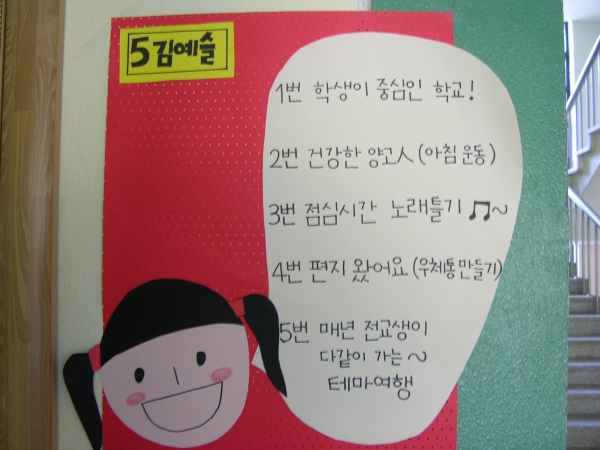 5 김예슬
1번 학생이 중심인 학교!
2번 건강한 양고人 (아침 운동)
3번 점심시간 노래틀기 ♫~
4번 편지 왔어요 (우체통 만들기)
5번 매년 전교생이
다같이 가는 ~
테마여행